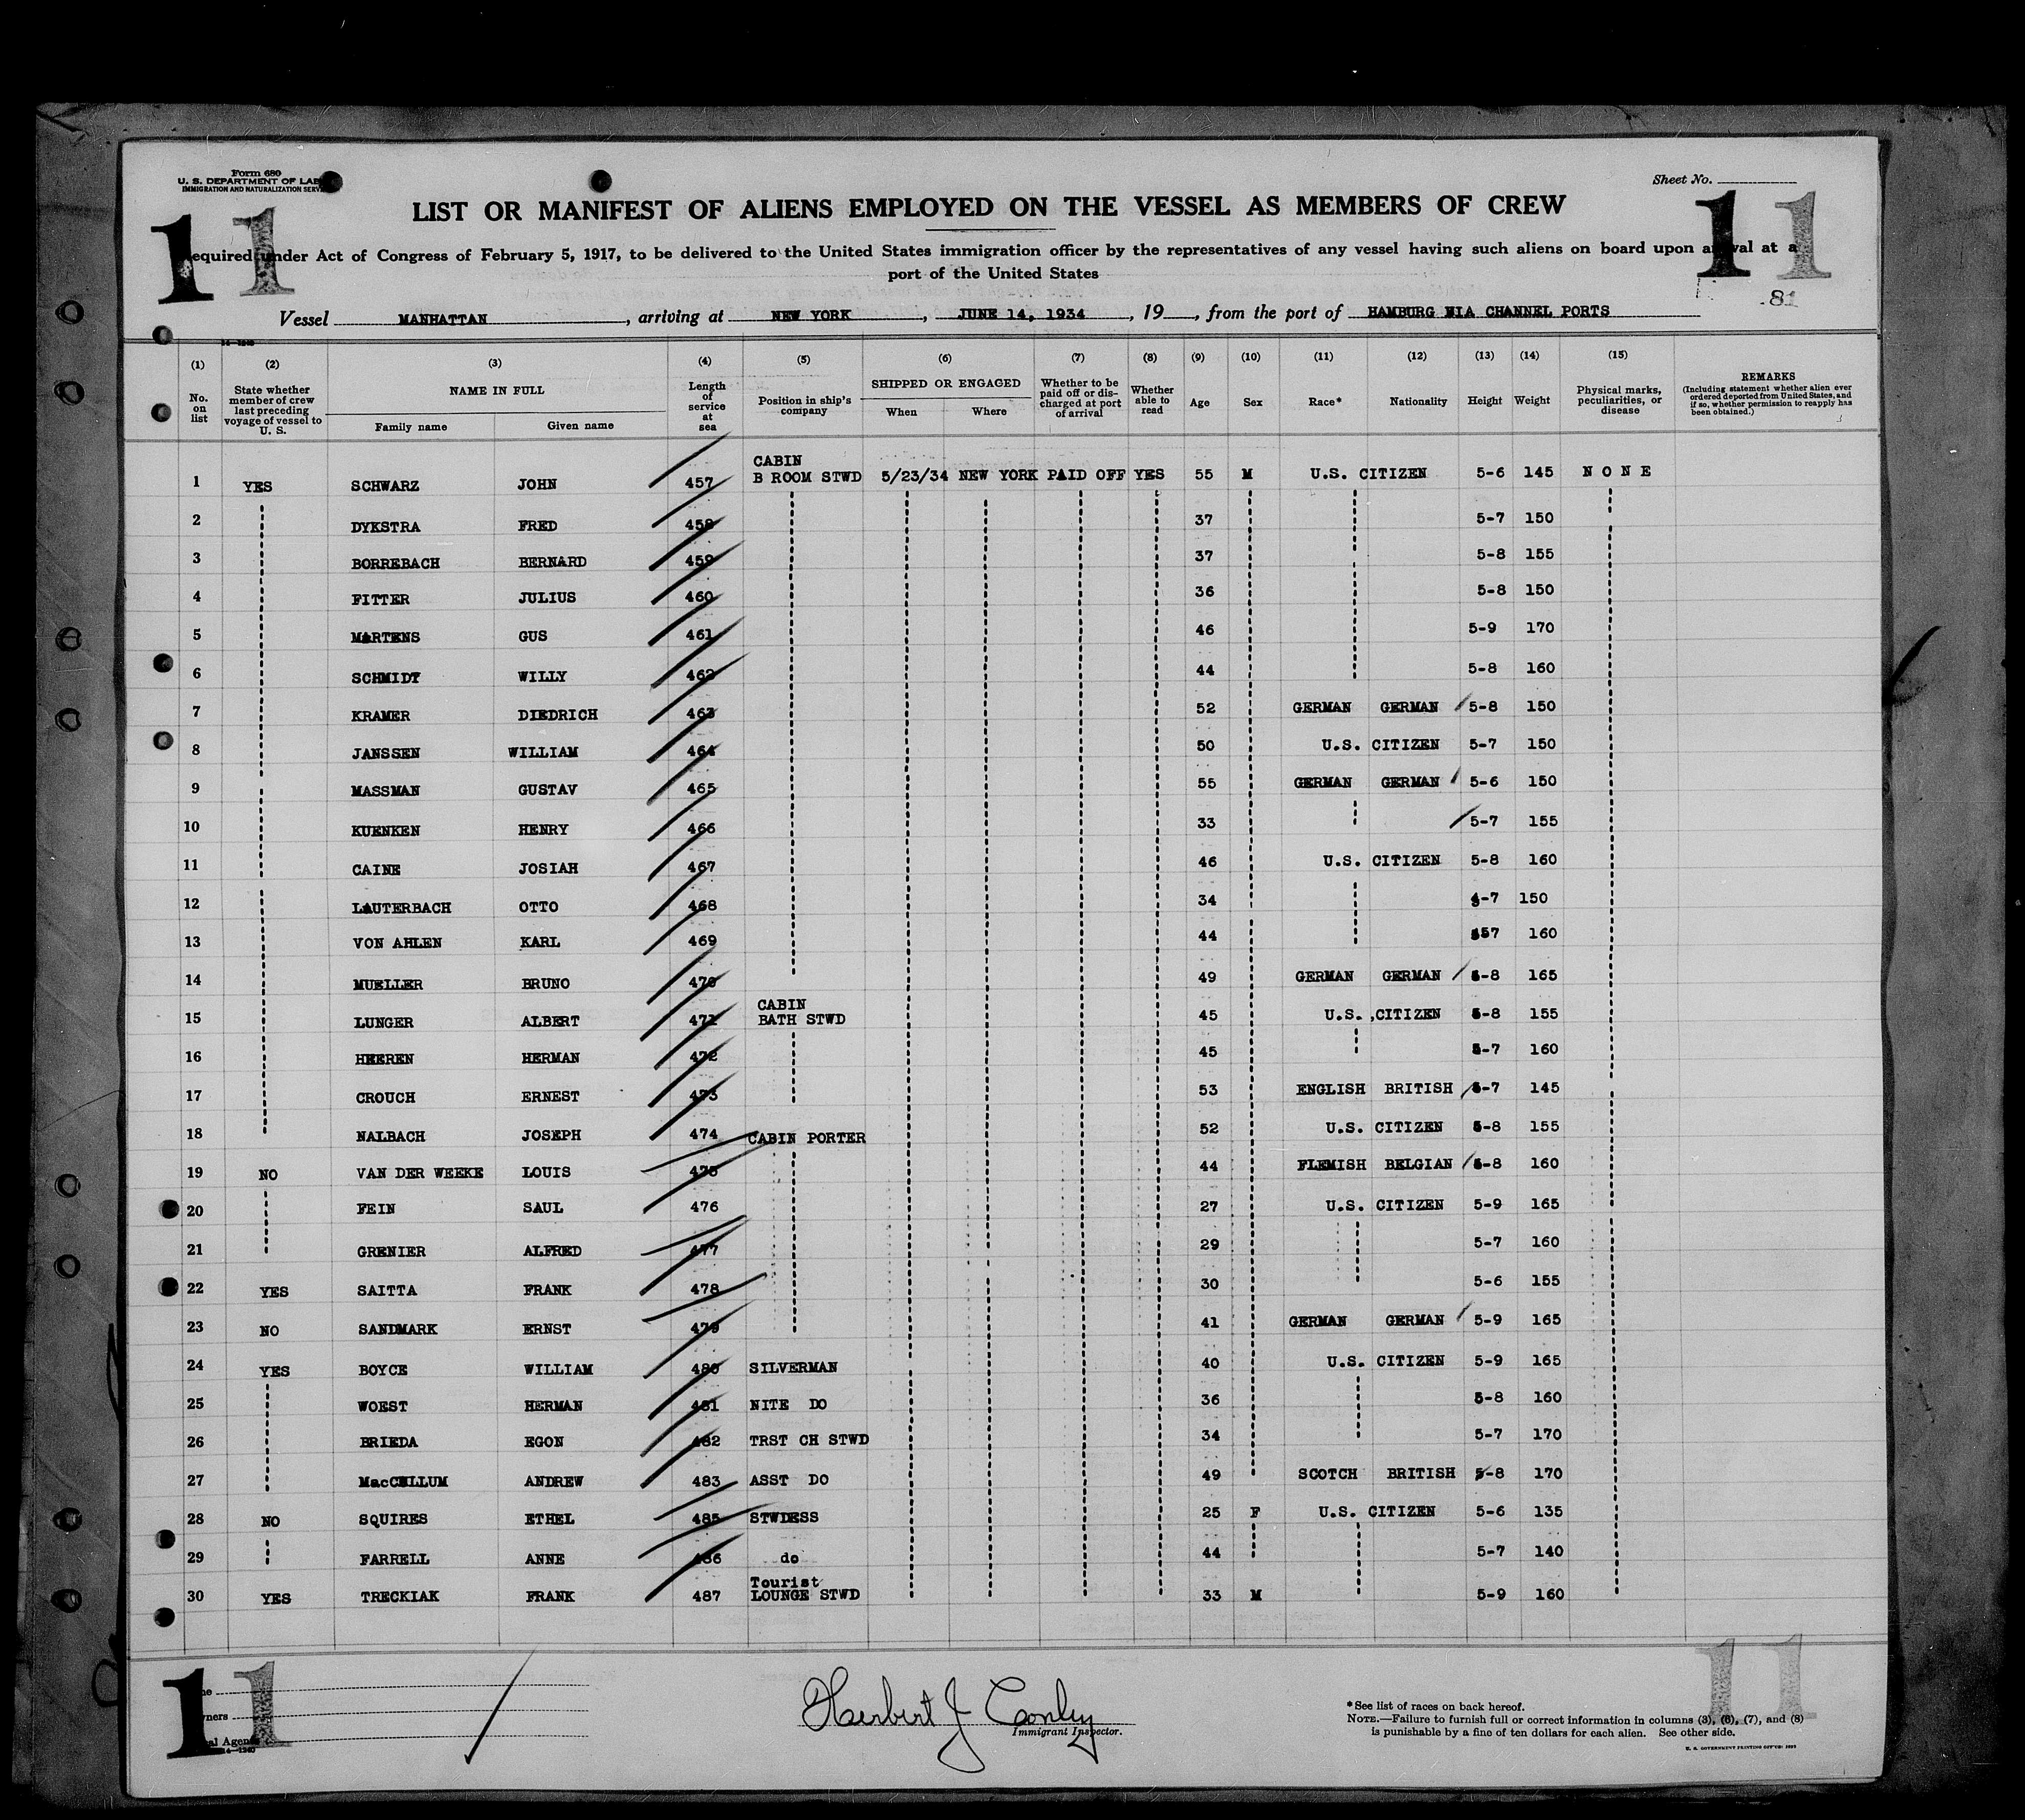 Form 680
U. S. DEPARTMENT OF LAB
IMMIGRATION AND NATURALIZATION SERV
Sheet No.
11
11
LIST OR MANIFEST OF ALIENS EMPLOYED ON THE VESSEL AS MEMBERS OF CREW
equired under Act of Congress of February 5, 1917, to be delivered to the United States immigration officer by the representatives of any vessel having such aliens on board upon arrival at a
port of the United States
81
Vessel MANHATTAN, arriving at NEW YORK, JUNE 14, 1934, 19, from the port of HAMBURG VIA CHANNEL PORTS
(1) (2) (3) (4) (5) (6) (7) (8) (9) (10) (11) (12) (13) (14) (15)
No. on list
State whether member of crew last preceding voyage of vessel to U. S.
NAME IN FULL
Family name
Given name
Length of service at sea
Position in ship's company
SHIPPED OR ENGAGED
When
Where
Whether to be paid off or discharged at port of arrival
Whether able to read
Age
Sex
Race*
Nationality
Height
Weight
Physical marks, peculiarities, or disease
REMARKS
(Including statement whether alien ever ordered deported from United States, and if so, whether permission to reapply has been obtained.)
1 YES SCHWARZ JOHN 457 CABIN B ROOM STWD 5/23/34 NEW YORK PAID OFF YES 55 M U.S. CITIZEN 5-6 145 NONE
2 DYKSTRA FRED 458 37 5-7 150
3 BORREBACH BERNARD 459 37 5-8 155
4 FITTER JULIUS 460 36 5-8 150
5 MARTENS GUS 461 46 5-9 170
6 SCHMIDT WILLY 462 44 5-8 160
7 KRAMER DIEDRICH 463 52 GERMAN GERMAN 5-8 150
8 JANSSEN WILLIAM 464 50 U.S. CITIZEN 5-7 150
9 MASSMAN GUSTAV 465 55 GERMAN GERMAN 5-6 150
10 KUENKEN HENRY 466 33 5-7 155
11 CAINE JOSIAH 467 46 U.S. CITIZEN 5-8 160
12 LAUTERBACH OTTO 468 34 5-7 150
13 VON AHLEN KARL 469 44 160
14 MUELLER BRUNO 470 49 GERMAN GERMAN 5-8 165
15 LUNGER ALBERT 471 CABIN BATH STWD 45 U.S. CITIZEN 5-8 155
16 HEEREN HERMAN 472 45 5-7 160
17 CROUCH ERNEST 473 53 ENGLISH BRITISH 5-7 145
18 NALBACH JOSEPH 474 CABIN PORTER 52 U.S. CITIZEN 5-8 155
19 NO VAN DER WEEKE LOUIS 475 44 FLEMISH BELGIAN 5-8 160
20 FEIN SAUL 476 27 U.S. CITIZEN 5-9 165
21 GRENIER ALFRED 477 29 5-7 160
22 YES SAITTA FRANK 478 30 5-6 155
23 NO SANDMARK ERNST 479 41 GERMAN GERMAN 5-9 165
24 YES BOYCE WILLIAM 480 SILVERMAN 40 U.S. CITIZEN 5-9 165
25 WOEST HERMAN 481 NITE DO 36 5-8 160
26 BRIEDA EGON 482 TRST CH STWD 34 5-7 170
27 ANDREW 483 ASST DO 49 SCOTCH BRITISH 5-8 170
28 NO SQUIRES ETHEL 485 STWDESS 25 F U.S. CITIZEN 5-6 135
29 FARRELL ANNE 486 do 44 5-7 140
30 YES TRECKIAK FRANK 487 Tourist LOUNGE STWD 33 M 5-9 160
11
11
Herbert J Conley
Immigrant Inspector.
*See list of races on back hereof.
NOTE.—Failure to furnish full or correct information in columns (3), (6), (7), and (8)
is punishable by a fine of ten dollars for each alien. See other side.